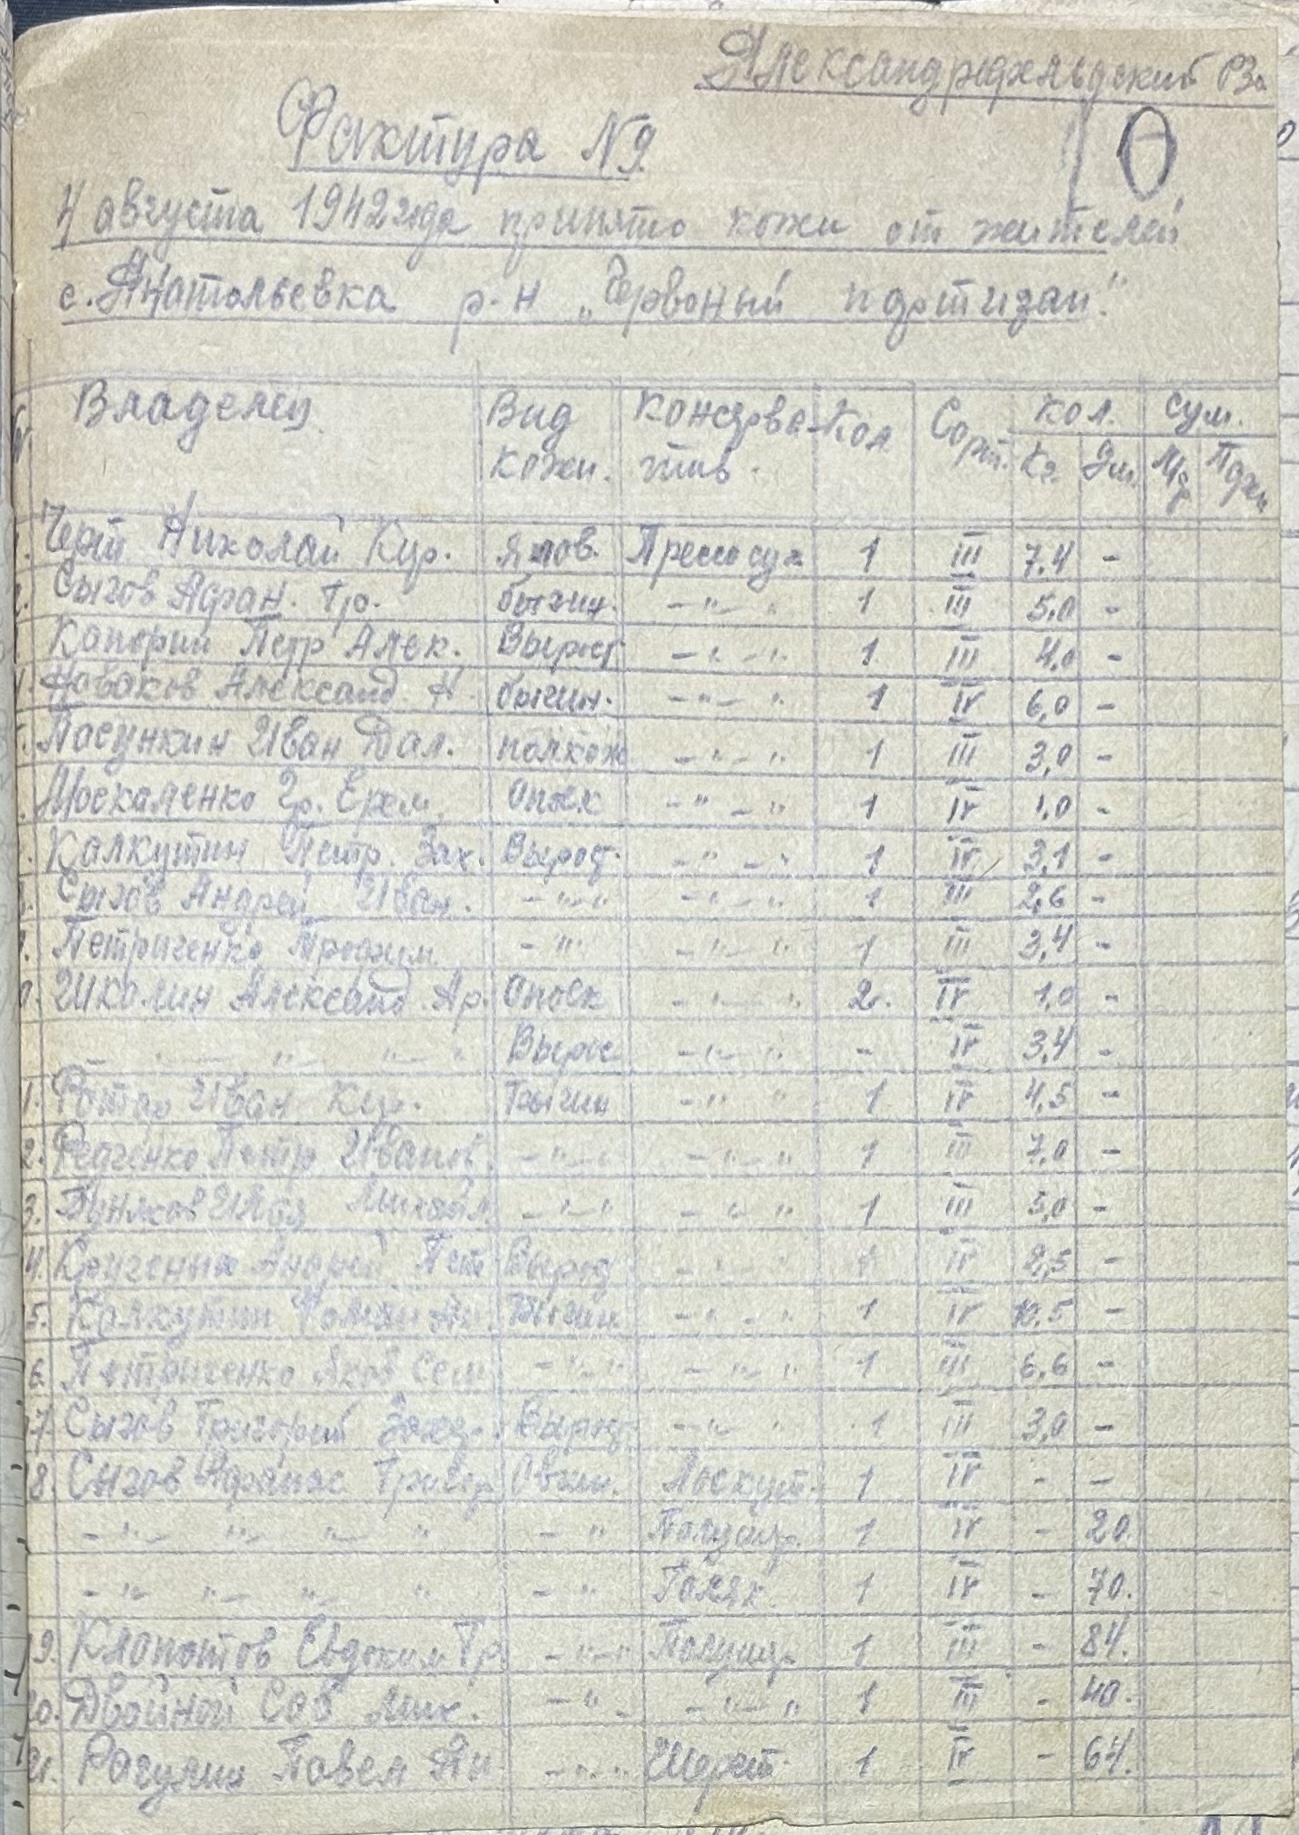 Александрфельдский РЗ
Фактура N 9.
4 августа 1942 года принято кожи от жителей
с. Анатольевка р-н „Червоный партизан"
Владелец. Вид кожи. Консерва-тив. Кол. Сорт. Кол. Кг. Дм. Сум.
Черт Николай Кир. Ялов. Прессосух 1 III 7,4 -
Сычов Афан. Гр. бычин. -"- " 1 III 5,0 -
Петр Алек. Вырост -"- " 1 III 4,0 -
Новаков Александ бычин. -"- " 1 IV 6,0 -
Посункин Иван Дан. полкож -"- " 1 III 3,0 -
Москаленко Гр. Ерем. Опоек -"- " 1 IV 1,0 -
Калкутин Петр. Зах. Вырост. -"- " 1 IV 3,1 -
Сычов Андрей Иван. -"-" -"- " 1 III 2,6 -
Петриченко Трофим. -"- -"- " 1 III 3,4 -
Шкалин Александ Ар. Опоек -"- " 2. IV 1,0 -
-"- " -"- " Вырос -"- " - IV 3,4 -
1. Ротар Иван Кир. Бычин -"- " 1 IV 4,5 -
2. Федченко Петр Иванов. -"-" -"- " 1 III 7,0 -
3. Илья Михайл. -"-" -"- " 1 III 5,0 -
4. Андрей Пет. Вырос -"- " 1 IV 2,5 -
5. Калкутин Роман Ан. Бычин -"- " 1 IV 10,5 -
6. Петриченко Яков Сем. -"-" -"- " 1 III 6,6 -
7. Сычов Григорий Захар. Вырост. -"- " 1 III 3,0 -
8. Сычов Афанас Григор. Овчин. Лоскут. 1 IV - -
-"- " -"- " -" Полушер. 1 IV - 20.
-"- " " " -" Голяк. 1 IV - 70.
9. Клопотов Евдоким Гр. -"-" Полушер. 1 III - 84.
20. Двойной Сав Мих. -"- -"- " 1 III - 40.
21. Рагулин Павел Ан. -"-" Шерст. 1 IV - 64.